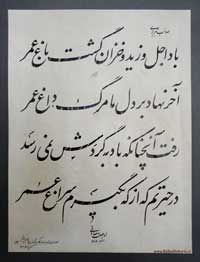 باد اجل وزید و خزان گشت باغ عمر
آخر نهاد بر دل ما مرگ داغ عمر
رفت آنچنانکه باد به گردش نمی رسد
در حیرتم که از که بگیرم سراغ عمر